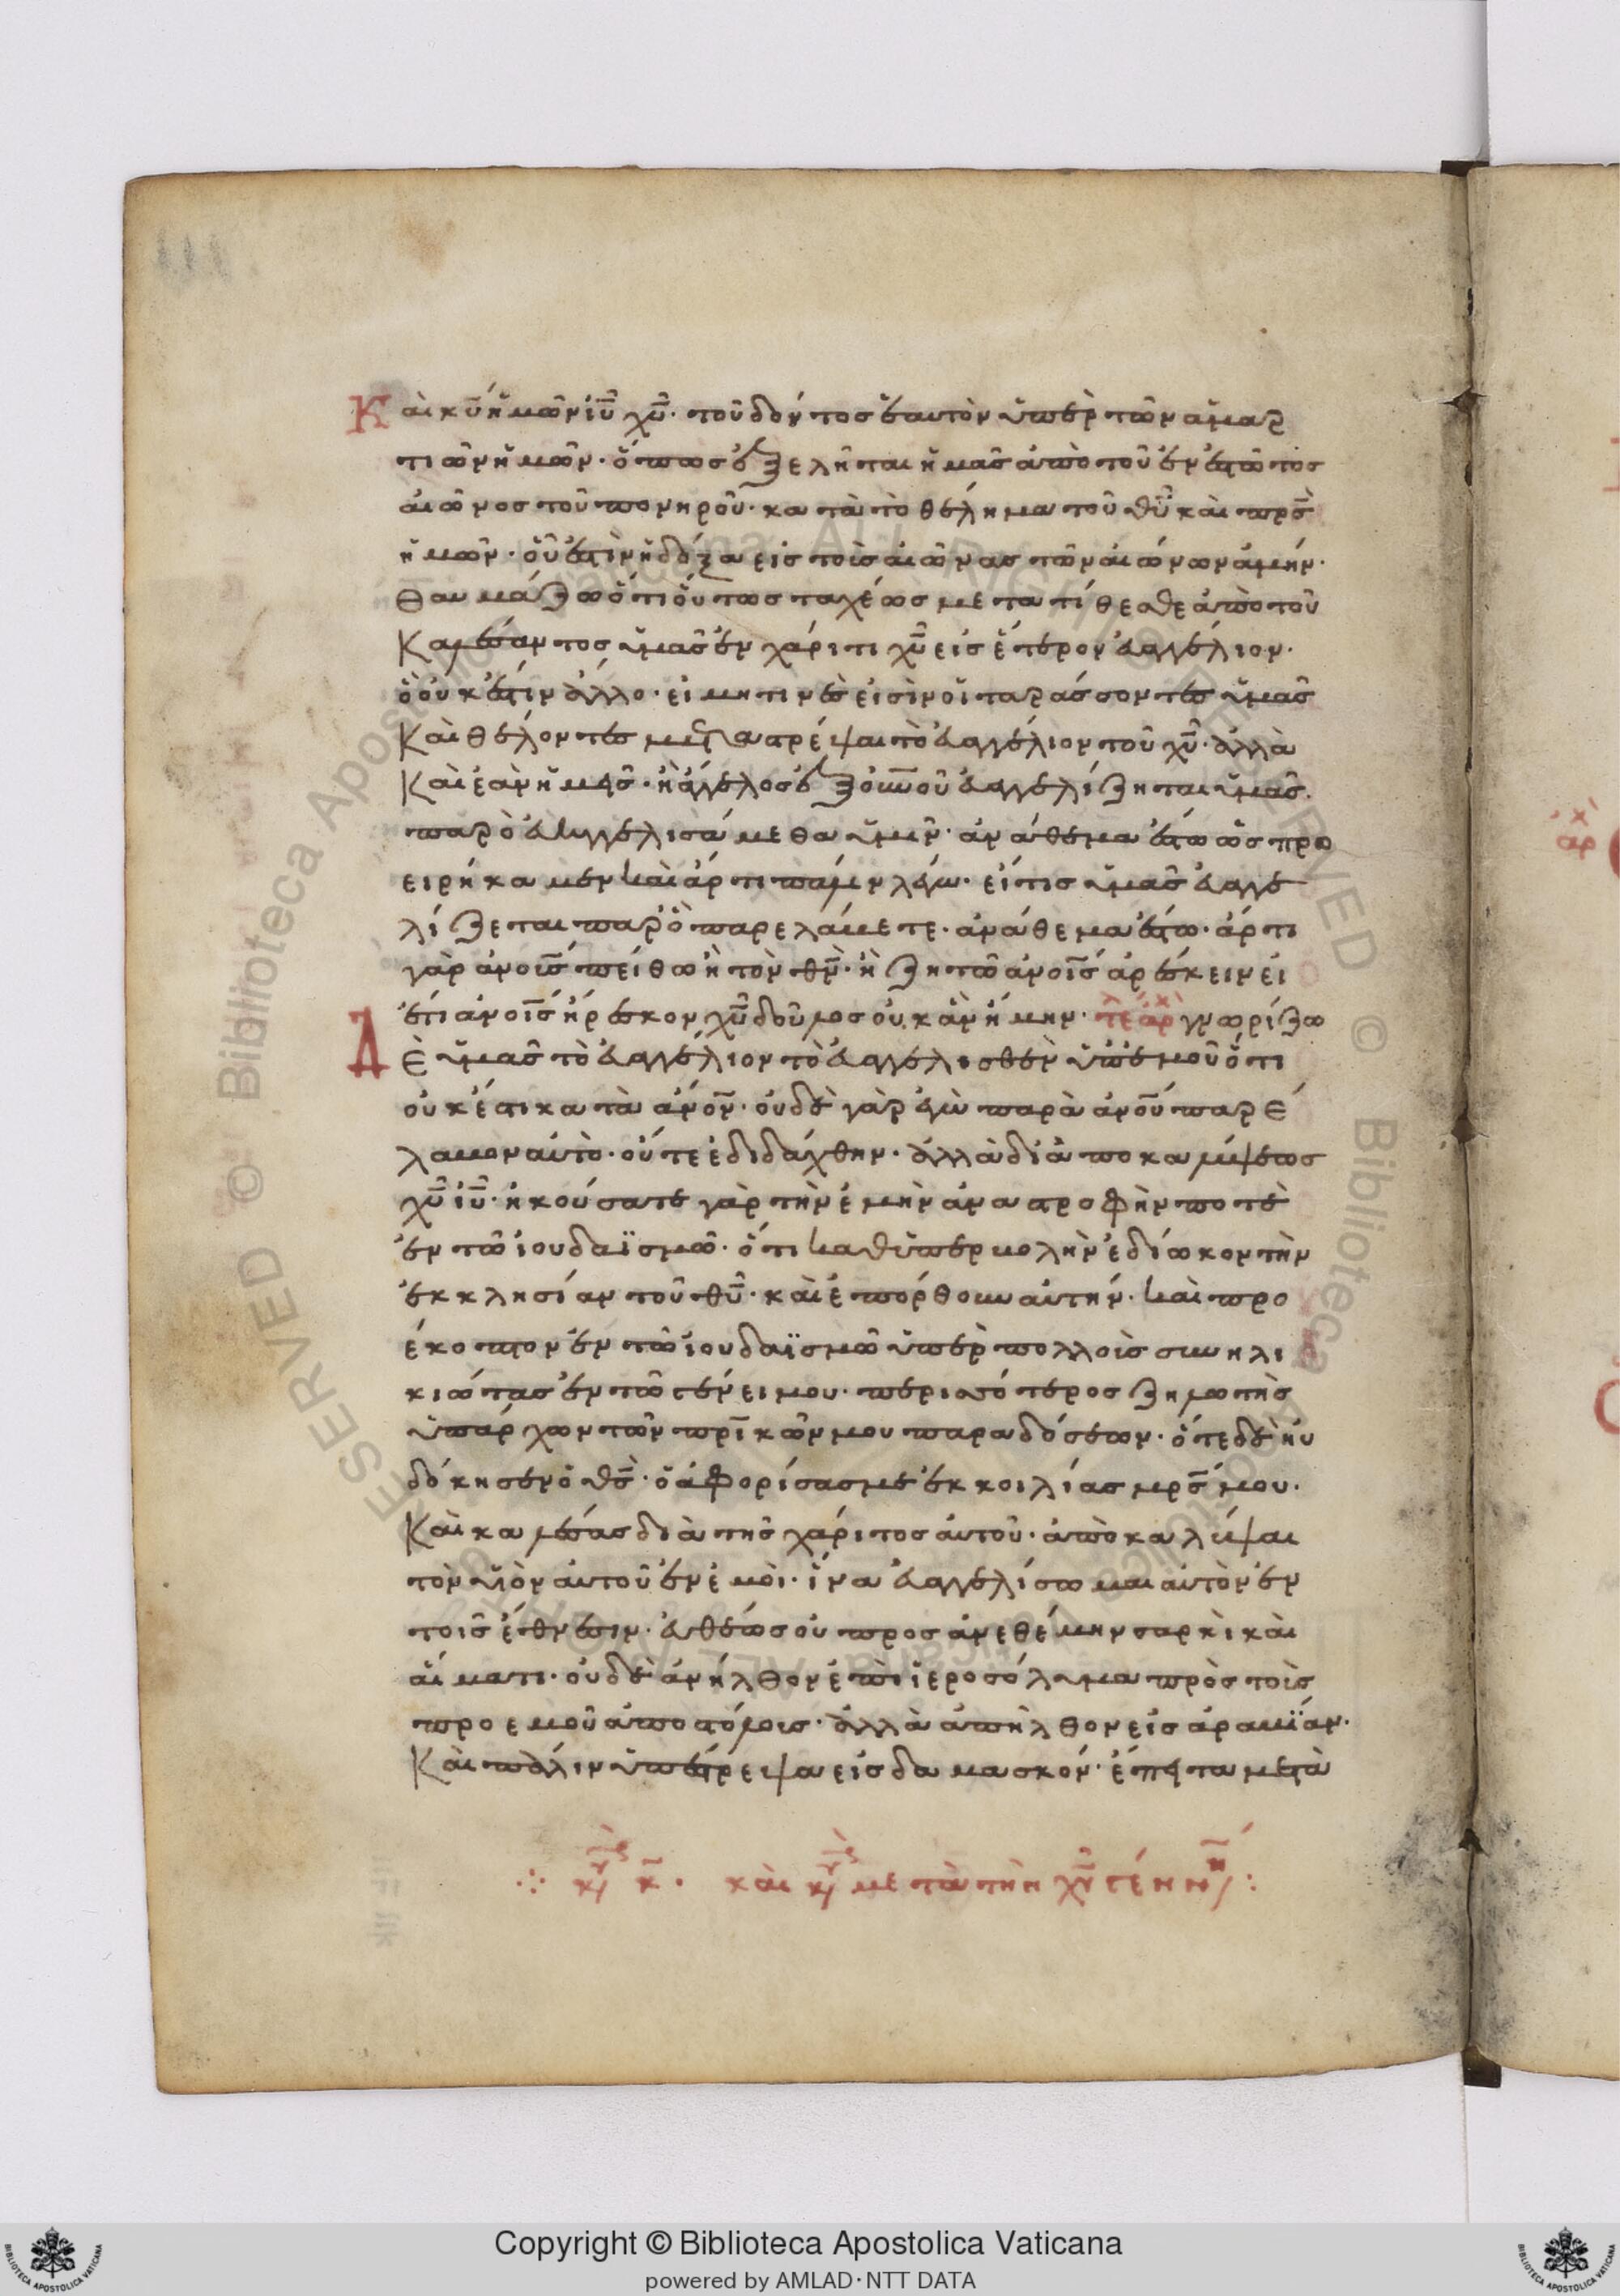 Καὶ κῡ ἡμῶν ἰῡ χῡ· τοῦ δόντος ἑαυτὸν ὑπὲρ τῶν ἁμαρ
τιῶν ἡμῶν· ὅπως ἐξεληται ἡμᾶς ἀπὸ τοῦ ἐνεστῶτος
αἰῶνος τοῦ πονηροῦ· κατὰ τὸ θέλημα τοῦ θῡ καὶ πρ̅ς
ἡμῶν· οὗ ἐστὶν ἡ δόξα εἰς τοὺς αἰῶνας τῶν αἰώνων ἀμήν·
Θαυμάζω ὅτι οὕτως ταχέως μετατίθεσθε ἀπὸ τοῦ
Καλέσαντος ὑμᾶς ἐν χάριτι χῡ εἰς ἕτερον ἐυαγγέλιον·
ὃ οὐκ ἔστιν ἄλλο· εἰ μή τινὲς εἰσὶν οἱ ταράσσοντες ὑμᾶς
Καὶ θέλοντες μεταστρέψαι τὸ ἐυαγγέλιον τοῦ χῡ· ἀλλὰ
Καὶ ἐὰν ἡμεῖς· ἢ ἄγγελος ἐξ οὐνοῦ ἐυαγγελίζηται ὑμᾶς·
παρ ὃ ἐυηγγελισάμεθα ὑμῖν· ἀνάθεμα ἔστω ὡς προ
ειρήκαμεν καὶ ἄρτι πάλιν λέγω· εἴ τις ὑμᾶς ἐυαγγε
λίζεται παρ ὃ παρελάβετε· ἀνάθεμα ἔστω· ἄρτι
γὰρ ἀνοῡς πείθω ἢ τὸν θν̅· ἢ ζητῶ ἀνοι̅ς ἀρέσκειν εἰ
ἔτι ἀνοι̅ς ἤρεσκον χῡ δοῦλος οὐκ ἂν ἤμην· τε αρχ γνωρίζω
Δὲ ὑμᾶς τὸ ἐυαγγέλιον τὸ ἐυαγγελισθὲν ὑπ ἐμοῦ ὅτι
οὐκ ἔστι κατὰ ἀνον̅· οὐδὲ γὰρ ἐγὼ παρὰ ἀνοῡ παρέ
λαβον αὐτὸ· οὔτε ἐδιδάχθην· ἀλλὰ δι ἀποκαλύψεως
χῡ ἰῡ· ἠκούσατε γὰρ τὴν ἐμὴν ἀναστροφὴν ποτὲ
ἐν τῶ ἰουδαϊσμῶ· ὅτι καθ ὑπερβολὴν ἐδίωκον τὴν
ἐκκλησίαν τοῦ θῡ· καὶ ἐπόρθουν αὐτήν· καὶ προ
έκοπτον ἐν τῶ ἰουδαϊσμῶ ὑπὲρ πολλοὺς συνηλι
κιώτας ἐν τῶ γένει μου· περισσότερος ζηλωτὴς
ὑπάρχων τῶν πρι̅κῶν μου παραδόσεων· ὅτε δὲ ηὐ
δόκησεν ὁ θς̅· ὁ ἀφορίσας με ἐκ κοιλίας μρς̅ μου·
Καὶ καλέσας διὰ τῆς χάριτος αὐτοῦ· ἀποκαλύψαι
τὸν υἱὸν αὐτοῦ ἐν ἐμοὶ· ἵνα ἐυαγγελίσωμαι αὐτὸν ἐν
τοῖς ἔθνεσιν· ἐυθέως οὐ προσανεθέμην σαρκὶ καὶ
αἵματι· οὐδὲ ἀνῆλθον ἐπὶ ἱεροσόλυμα πρὸς τοὺς
προ ἐμοῦ ἀποστόλους· ἀλλὰ ἀπῆλθον εἰς ἀραβίαν·
Καὶ πάλιν ὑπέστρεψα εἰς δαμασκόν· ἔπειτα μετὰ
κυ κ̅· καὶ κυ μετὰ τὴν χῡ γένν
αρχ
Copyright © Biblioteca Apostolica Vaticana
powered by AMLAD·NTT DATA